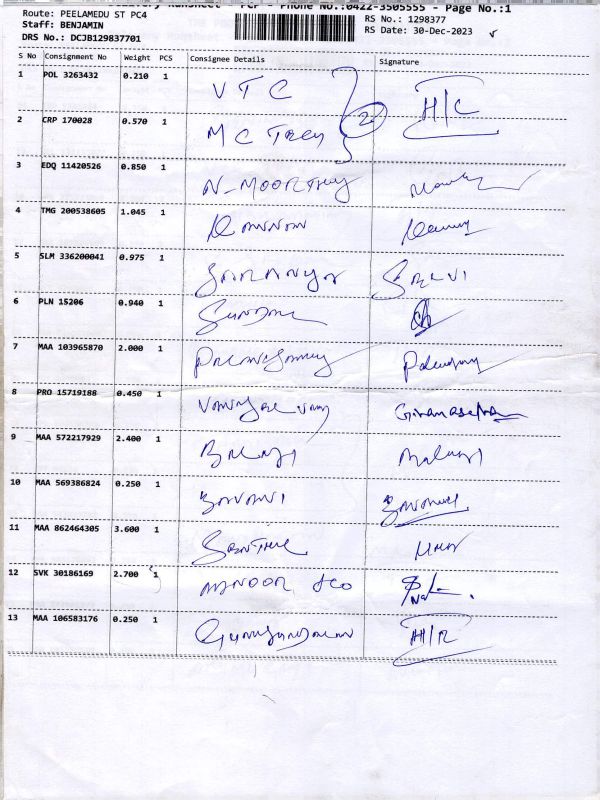 PCP - Phone No.:0422-3505555 - Page No.:1
Route: PEELAMEDU ST PC4
RS No.: 1298377
Staff: BENJAMIN
RS Date: 30-Dec-2023
DRS No.: DCJB129837701
S No Consignment No Weight PCS Consignee Details Signature
1 POL 3263432 0.210 1 VTC H/C
2 CRP 170028 0.570 1 MC 2
3 EDQ 11420526 0.850 1 N-MOORTHY
4 TMG 200538605 1.045 1 Kannan
5 SLM 336200041 0.975 1 Saranya SELVI
6 PLN 15206 0.940 1
7 MAA 103965870 2.000 1 Palanisamy
8 PRO 15719188 0.450 1 Gnanasekar
9 MAA 572217929 2.400 1 Balaji Balaji
10 MAA 569386824 0.250 1 Bavani
11 MAA 862464305 3.600 1 Senthil
12 SVK 30186169 2.700 1
13 MAA 106583176 0.250 1 H/R